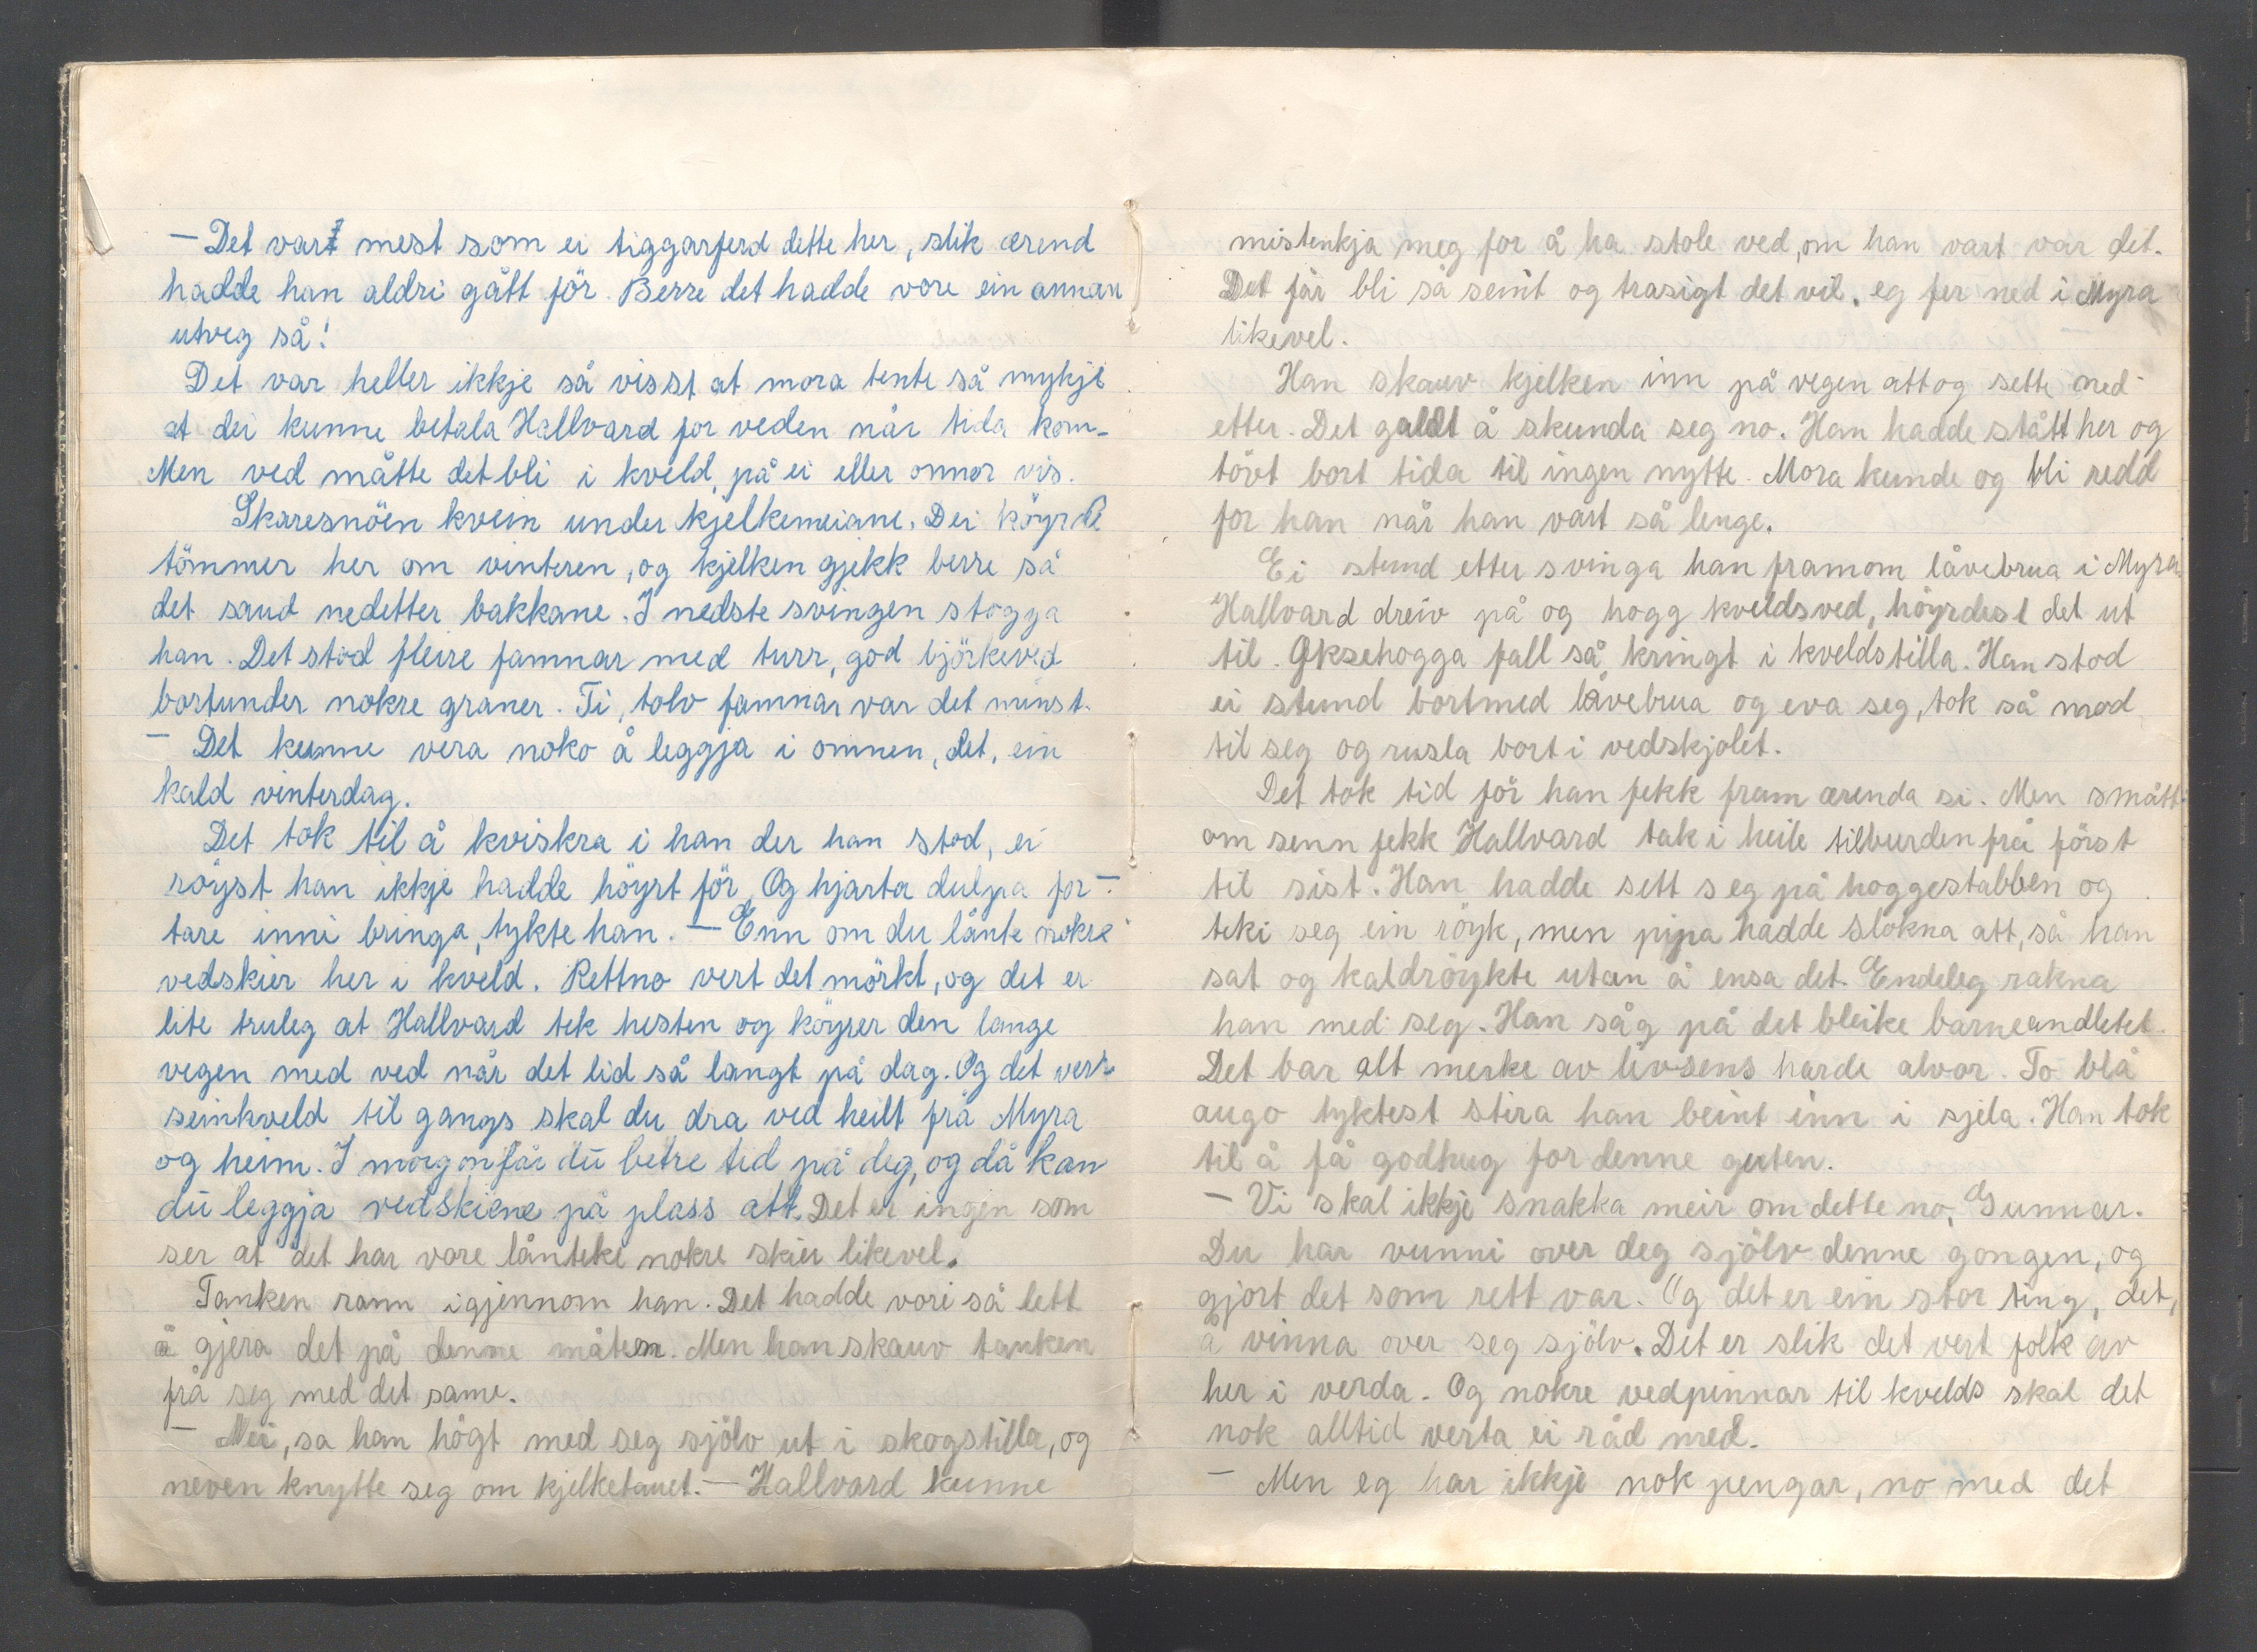 — Det vart mest som ei tiggarferd dette her, slik ærend
hadde han aldri gått för. Berre det hadde vore ein annan
utveg så!
Det var heller ikkje så visst at mora tente så mykje
at dei kunne betala Hallvard for veden når tida kom.
Men ved måtte det bli i kveld, på ei eller onnor vis.
Skaresnöen kvein under kjelkemeiane. Dei köyrde
tömmer her om vinteren, og kjelken gjekk berre så
det saud nedetter bakkane. I nedste svingen stogga
han. Det stod fleire famnar med turr, god björkeved
bortunder nokre graner. Ti, tolv famnar var det minst.
— Det kunne vera noko å leggja i omnen, det, ein
kald vinterdag.
Det tok til å kviskra i han der han stod, ei
röyst han ikkje hadde höyrt för. Og hjarta dulpa for-
tare inni bringa, tykte han. — Enn om du lånte nokre
vedskier her i kveld. Rettno vert det mörkt, og det er
lite truleg at Hallvard tek hesten og köyrer den lange
vegen med ved når det lid så langt på dag. Og det vert
seinkveld til gangs skal du dra ved heilt frå Myra
og heim. I morgon får du betre tid på deg, og då kan
du leggja vedskiene på plass att. Det er ingen som
ser at det har vore lånteke nokre skier likevel.
Tanken rann igjennom han. Det hadde vori så lett
å gjera det på denne måten. Men han skauv tanken
frå seg med det same.
— Nei, sa han högt med seg sjölv ut i skogstilla, og
neven knytte seg om kjelketauet. — Hallvard kunne
mistenkja meg for å ha stole ved, om han vart var det.
Det får bli så seint og trasigt det vil, eg fer ned i Myra
likevel.
Han skauv kjelken inn på vegen att og sette ned-
etter. Det galdt å skunda seg no. Han hadde stått her og
tövt bort tida til ingen nytte. Mora kunde og bli redd
for han når han vart så lenge.
Ei stund etter svinga han framom låvebrua i Myra.
Hallvard dreiv på og hogg kveldsved, höyrdest det ut
til. Öksehogga fall så kringt i kveldstilla. Han stod
ei stund bortmed låvebrua og eva seg, tok så mod
til seg og rusla bort i vedskjolet.
Det tok tid för han fekk fram ærenda si. Men smått
om senn fekk Hallvard tak i heile tilburden frå först
til sist. Han hadde sett seg på hoggestabben og
teki seg ein röyk, men pipa hadde slokna att, så han
sat og kaldröykte utan å ensa det. Endeleg rakna
han med seg. Han såg på det bleike barneandletet.
Det bar alt merke av livsens harde alvor. To blå
augo tyktest stira han beint inn i sjela. Han tok
til å få godhug for denne guten.
— Vi skal ikkje snakka meir om dette no, Gunnar.
Du har vunni over deg sjölv denne gongen, og
gjort det som rett var. Og det er ein stor ting, det,
å vinna over seg sjölv. Det er slik det vert folk av
her i verda. Og nokre vedpinnar til kvelds skal det
nok alltid verta ei råd med.
— Men eg har ikkje nok pengar, no med det